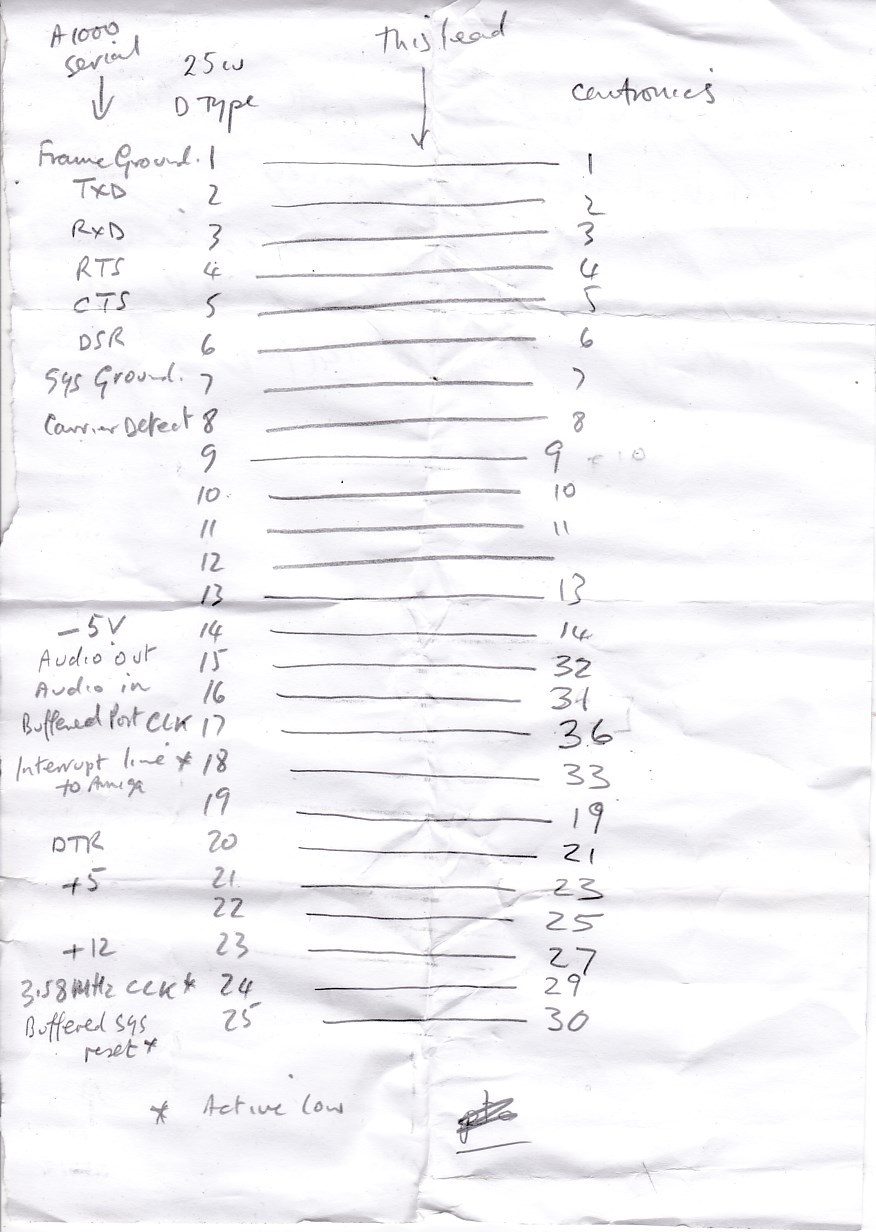 A1000 serial
25w D Type
this lead
centronics
Frame Ground. 1 1
TXD 2 2
RxD 3 3
RTS 4 4
CTS 5 5
DSR 6 6
Sys Ground. 7 7
Carrier Detect 8 8
9 9 + 10
10 10
11 11
12
13 13
-5V 14 14
Audio out 15 32
Audio in 16 31
Buffered Port CLK 17 36
Interrupt line * 18 33
to Amiga
19 19
DTR 20 21
+5 21 23
22 25
+12 23 27
3.58MHz CLK* 24 29
Buffered Sys 25 30
reset *
* Active low